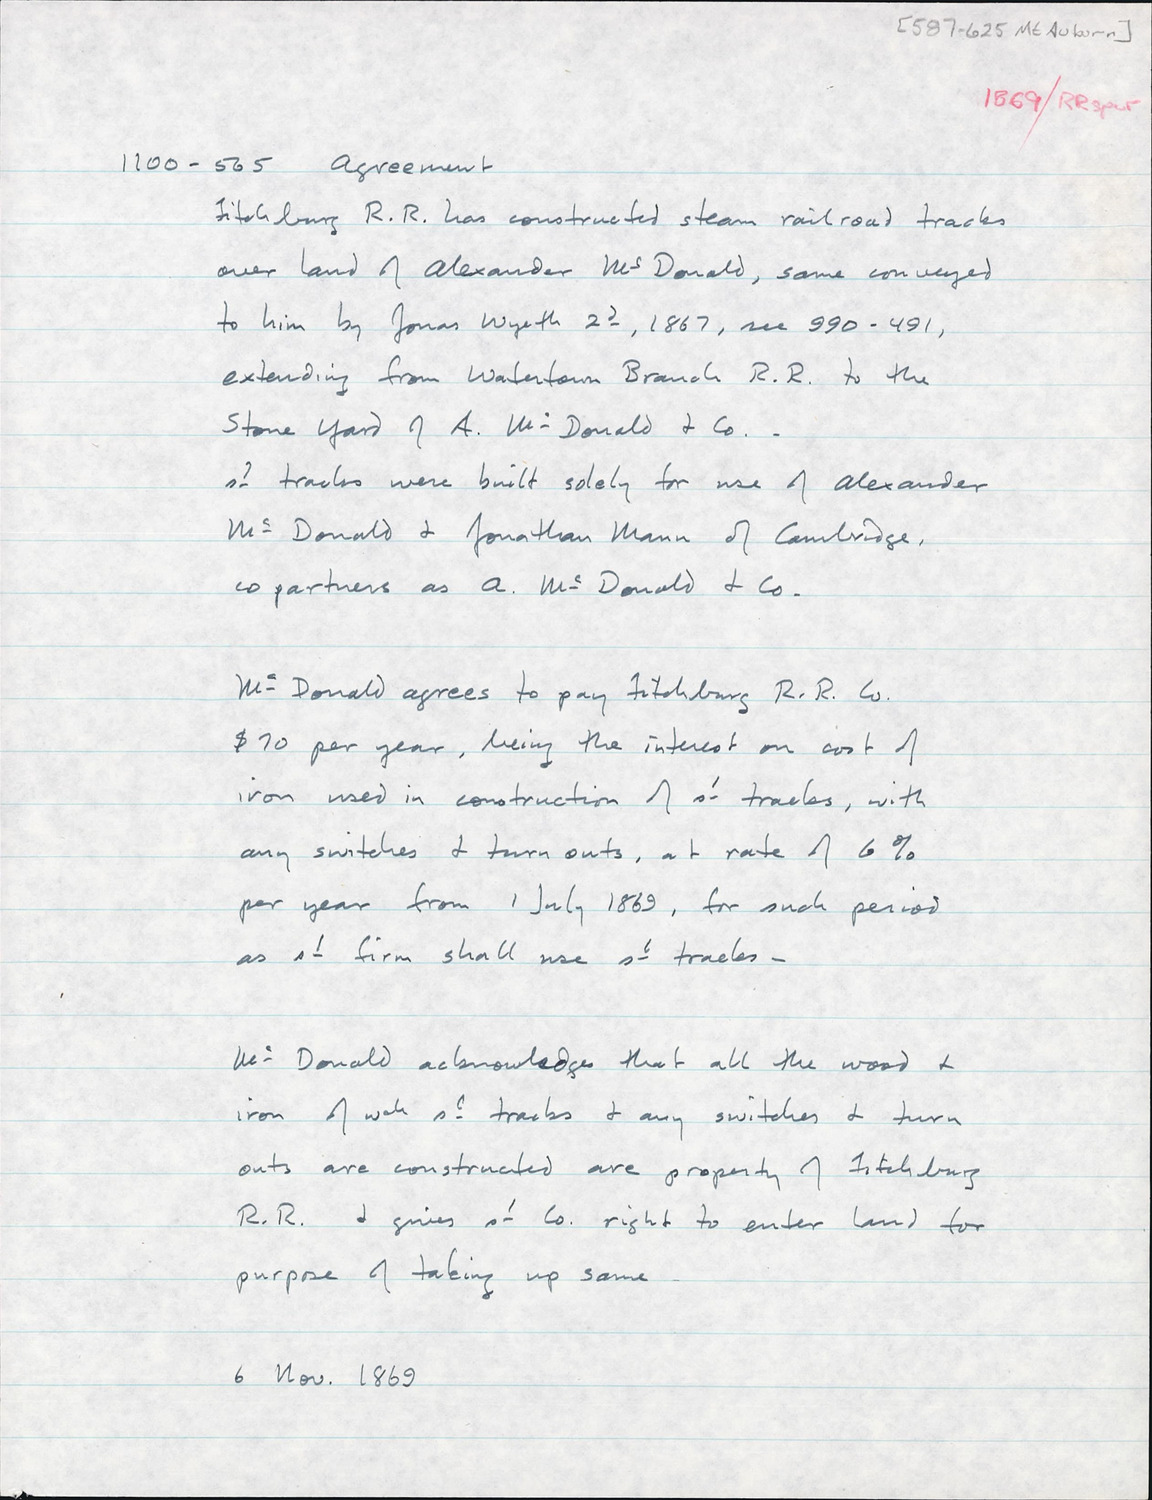 [587-625 Mt Auburn]
1869/RR spur
1100-565 Agreement
Fitchburg R.R. has constructed steam railroad tracks
over land of Alexander McDonald, same conveyed
to him by Jonas Wyeth 2d, 1867, see 990-491,
extending from Watertown Branch R.R. to the
Stone Yard of A. McDonald & Co. -
sd tracks were built solely for use of Alexander
McDonald & Jonathan Mann of Cambridge,
copartners as A. McDonald & Co.
McDonald agrees to pay Fitchburg R.R. Co.
$70 per year, being the interest on cost of
iron used in construction of sd tracks, with
any switches & turn outs, at rate of 6%
per year from 1 July 1869, for such period
as sd firm shall use sd tracks -
McDonald acknowledges that all the wood &
iron of wch sd tracks & any switches & turn
outs are constructed are property of Fitchburg
R.R. & gives sd Co. right to enter land for
purpose of taking up same
6 Nov. 1869